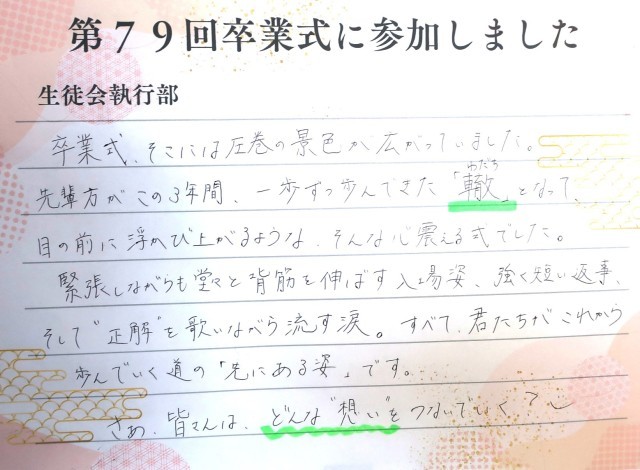 第79回卒業式に参加しました
生徒会執行部
卒業式、そこには圧巻の景色が広がっていました。
わだち
先輩方がこの3年間、一歩ずつ歩んできた「轍」となって、
目の前に浮かび上がるような、そんな心震える式でした。
緊張しながらも堂々と背筋を伸ばす入場姿、強く短い返事、
そして"正解"を歌いながら流す涙。すべて、君たちがこれから
歩んでいく道の「先にある姿」です。
さあ、皆さんは、どんな"想い"をつないでいく?〜